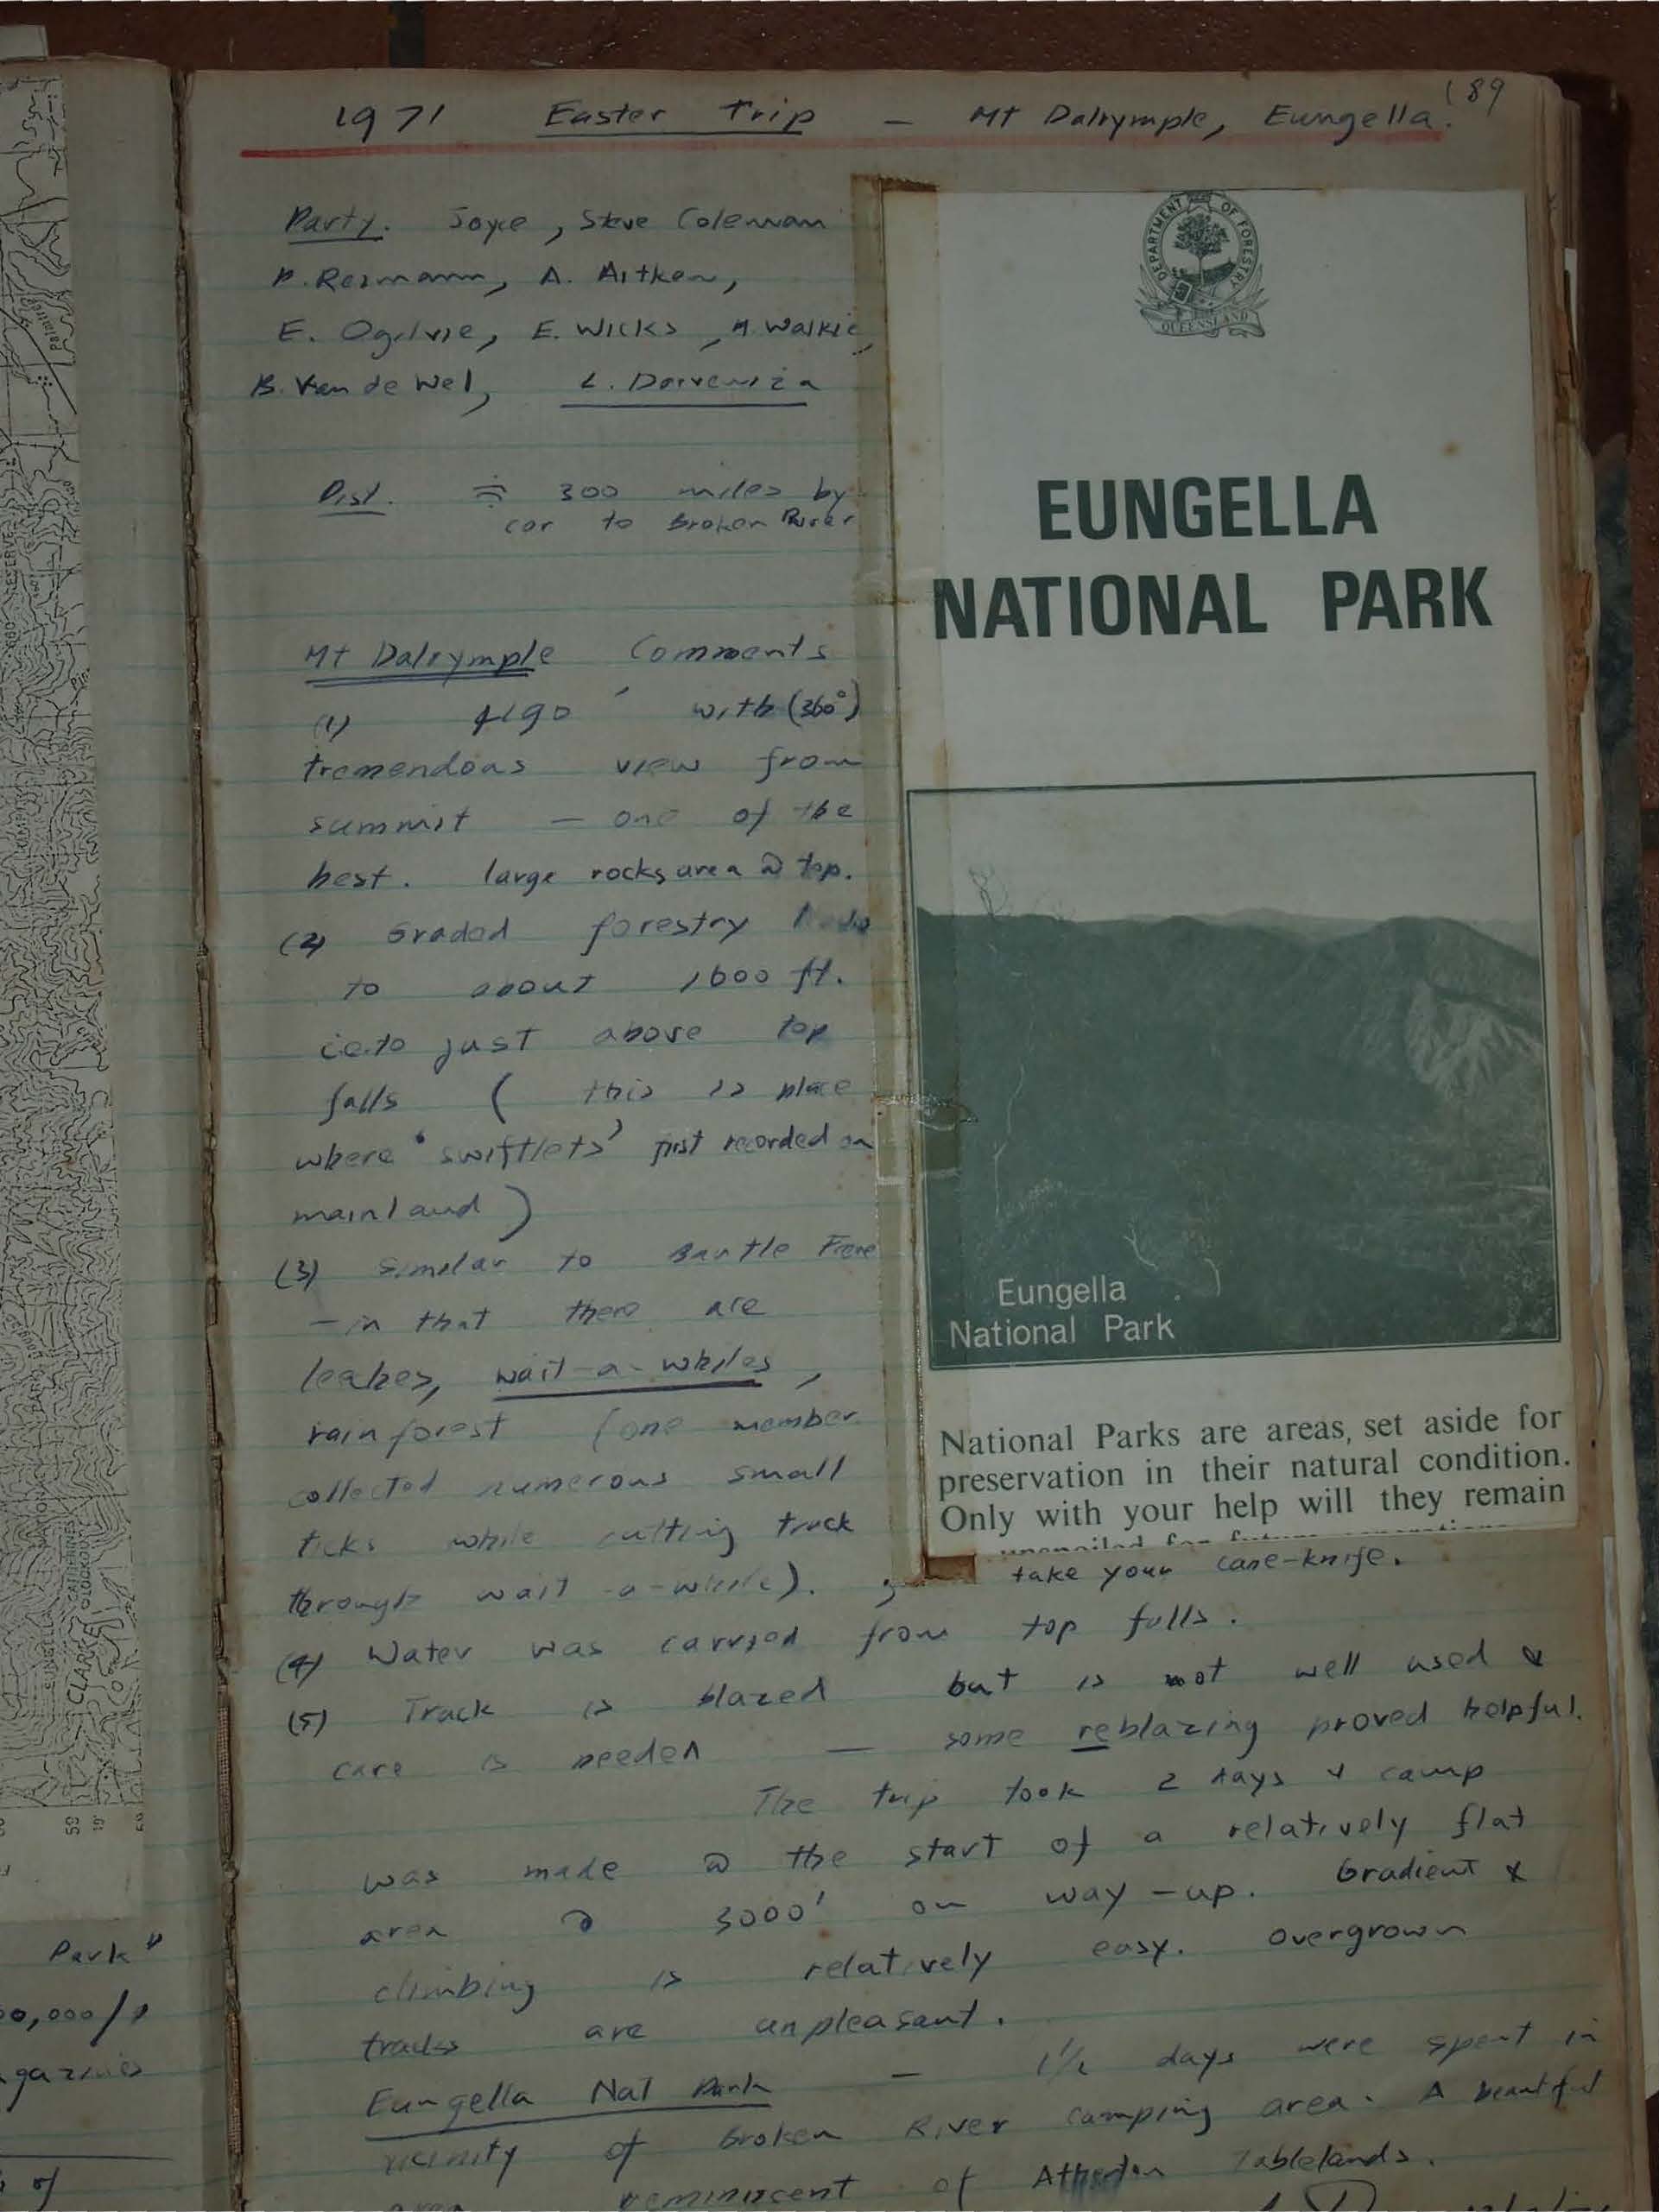 189
1971 Easter Trip - Mt Dalrymple, Eungella.
Party. Joyce, Steve Coleman
P. Reimann, A. Aitken,
E. Ogilvie, E. Wicks, H. Walkie,
B. Van de Wel, L. Dorveniza
Dist. ≑ 300 miles by
car to Broken River
Mt Dalrymple Comments
(1) 4190' with (360°)
tremendous view from
summit - one of the
best. large rocks area @ top.
(2) Graded forestry
to about 1600 ft.
i.e. to just above top
falls (this is place
where 'swiftlets' first recorded on
mainland)
(3) Similar to Bartle Frere
- in that there are
leahes, wait-a-whiles,
rainforest (one member
collected numerous small
ticks while cutting track
through wait-a-while). take your cane-knife.
(4) Water was carried from top falls.
(5) Track is blazed but is not well used &
care is needed - some reblazing proved helpful.
The trip took 2 days & camp
was made @ the start of a relatively flat
area @ 3000' on way-up. Gradient &
climbing is relatively easy. Overgrown
tracks are unpleasant.
Eungella Nat Park - 1½ days were spent in
vicinity of Broken River camping area. A beautiful
area reminiscent of Atherton Tablelands.
DEPARTMENT OF FORESTRY
QUEENSLAND
EUNGELLA
NATIONAL PARK
Eungella
National Park
National Parks are areas, set aside for
preservation in their natural condition.
Only with your help will they remain
Park"
00,000/1
gazines
of
CLARKE